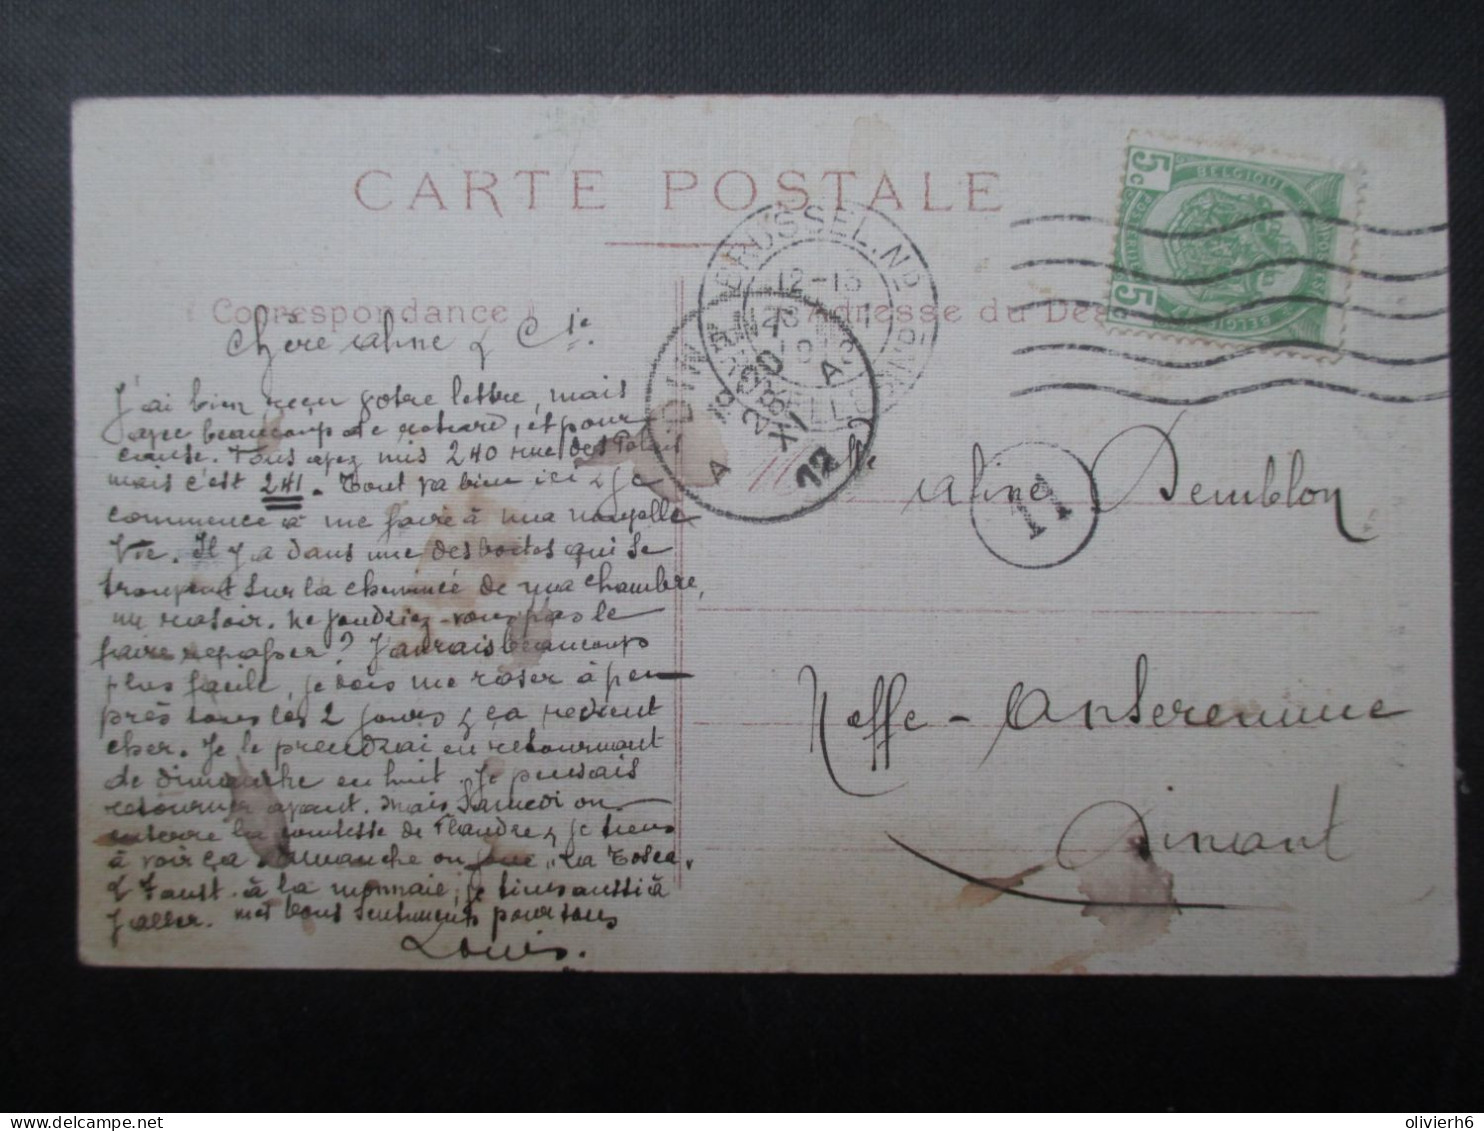 CARTE POSTALE
Correspondance
Adresse du Des
BELGIQUE
5c
5c
BRUSSEL.
12-13
DINANT
12
11
Chère Céline & Cie.
J'ai bien reçu votre lettre, mais
avec beaucoup de retard, et pour
cause. Vous avez mis 240 rue des Palais
mais c'est 241. Tout va bien ici & je
commence à me faire à ma nouvelle
vie. Il y a dans une des boites qui se
trouvent sur la cheminée de ma chambre,
un rasoir. Ne voudriez-vous pas le
faire repasser? J'aurais beaucoup
plus facile, je dois me raser à peu
près tous les 2 jours & ça revient
cher. Je le prendrai en retournant
de dimanche en huit. Je pensais
retourner avant. Mais Samedi on
enterre la comtesse de Flandre & je tiens
à voir ça. Dimanche on joue "La Tosca"
& Faust à la monnaie; je tiens aussi à
y aller. Mes bons sentiments pour tous
Louis.
Céline Demblon
Neffe - Anseremme
Dinant
olivierh6